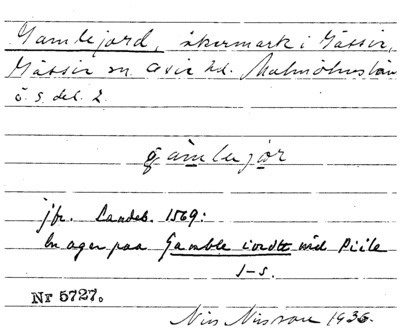 Gamlejord, åkermark i Gässie,
Gässie sn. Oxie hd. Malmöhus län
ö. s. del. 2.
gamlejor
jfr. Landeb. 1569:
en ager paa Gamble iordtt wid Piile
I-s.
Nr 5727.
Nils Nilsson 1936.